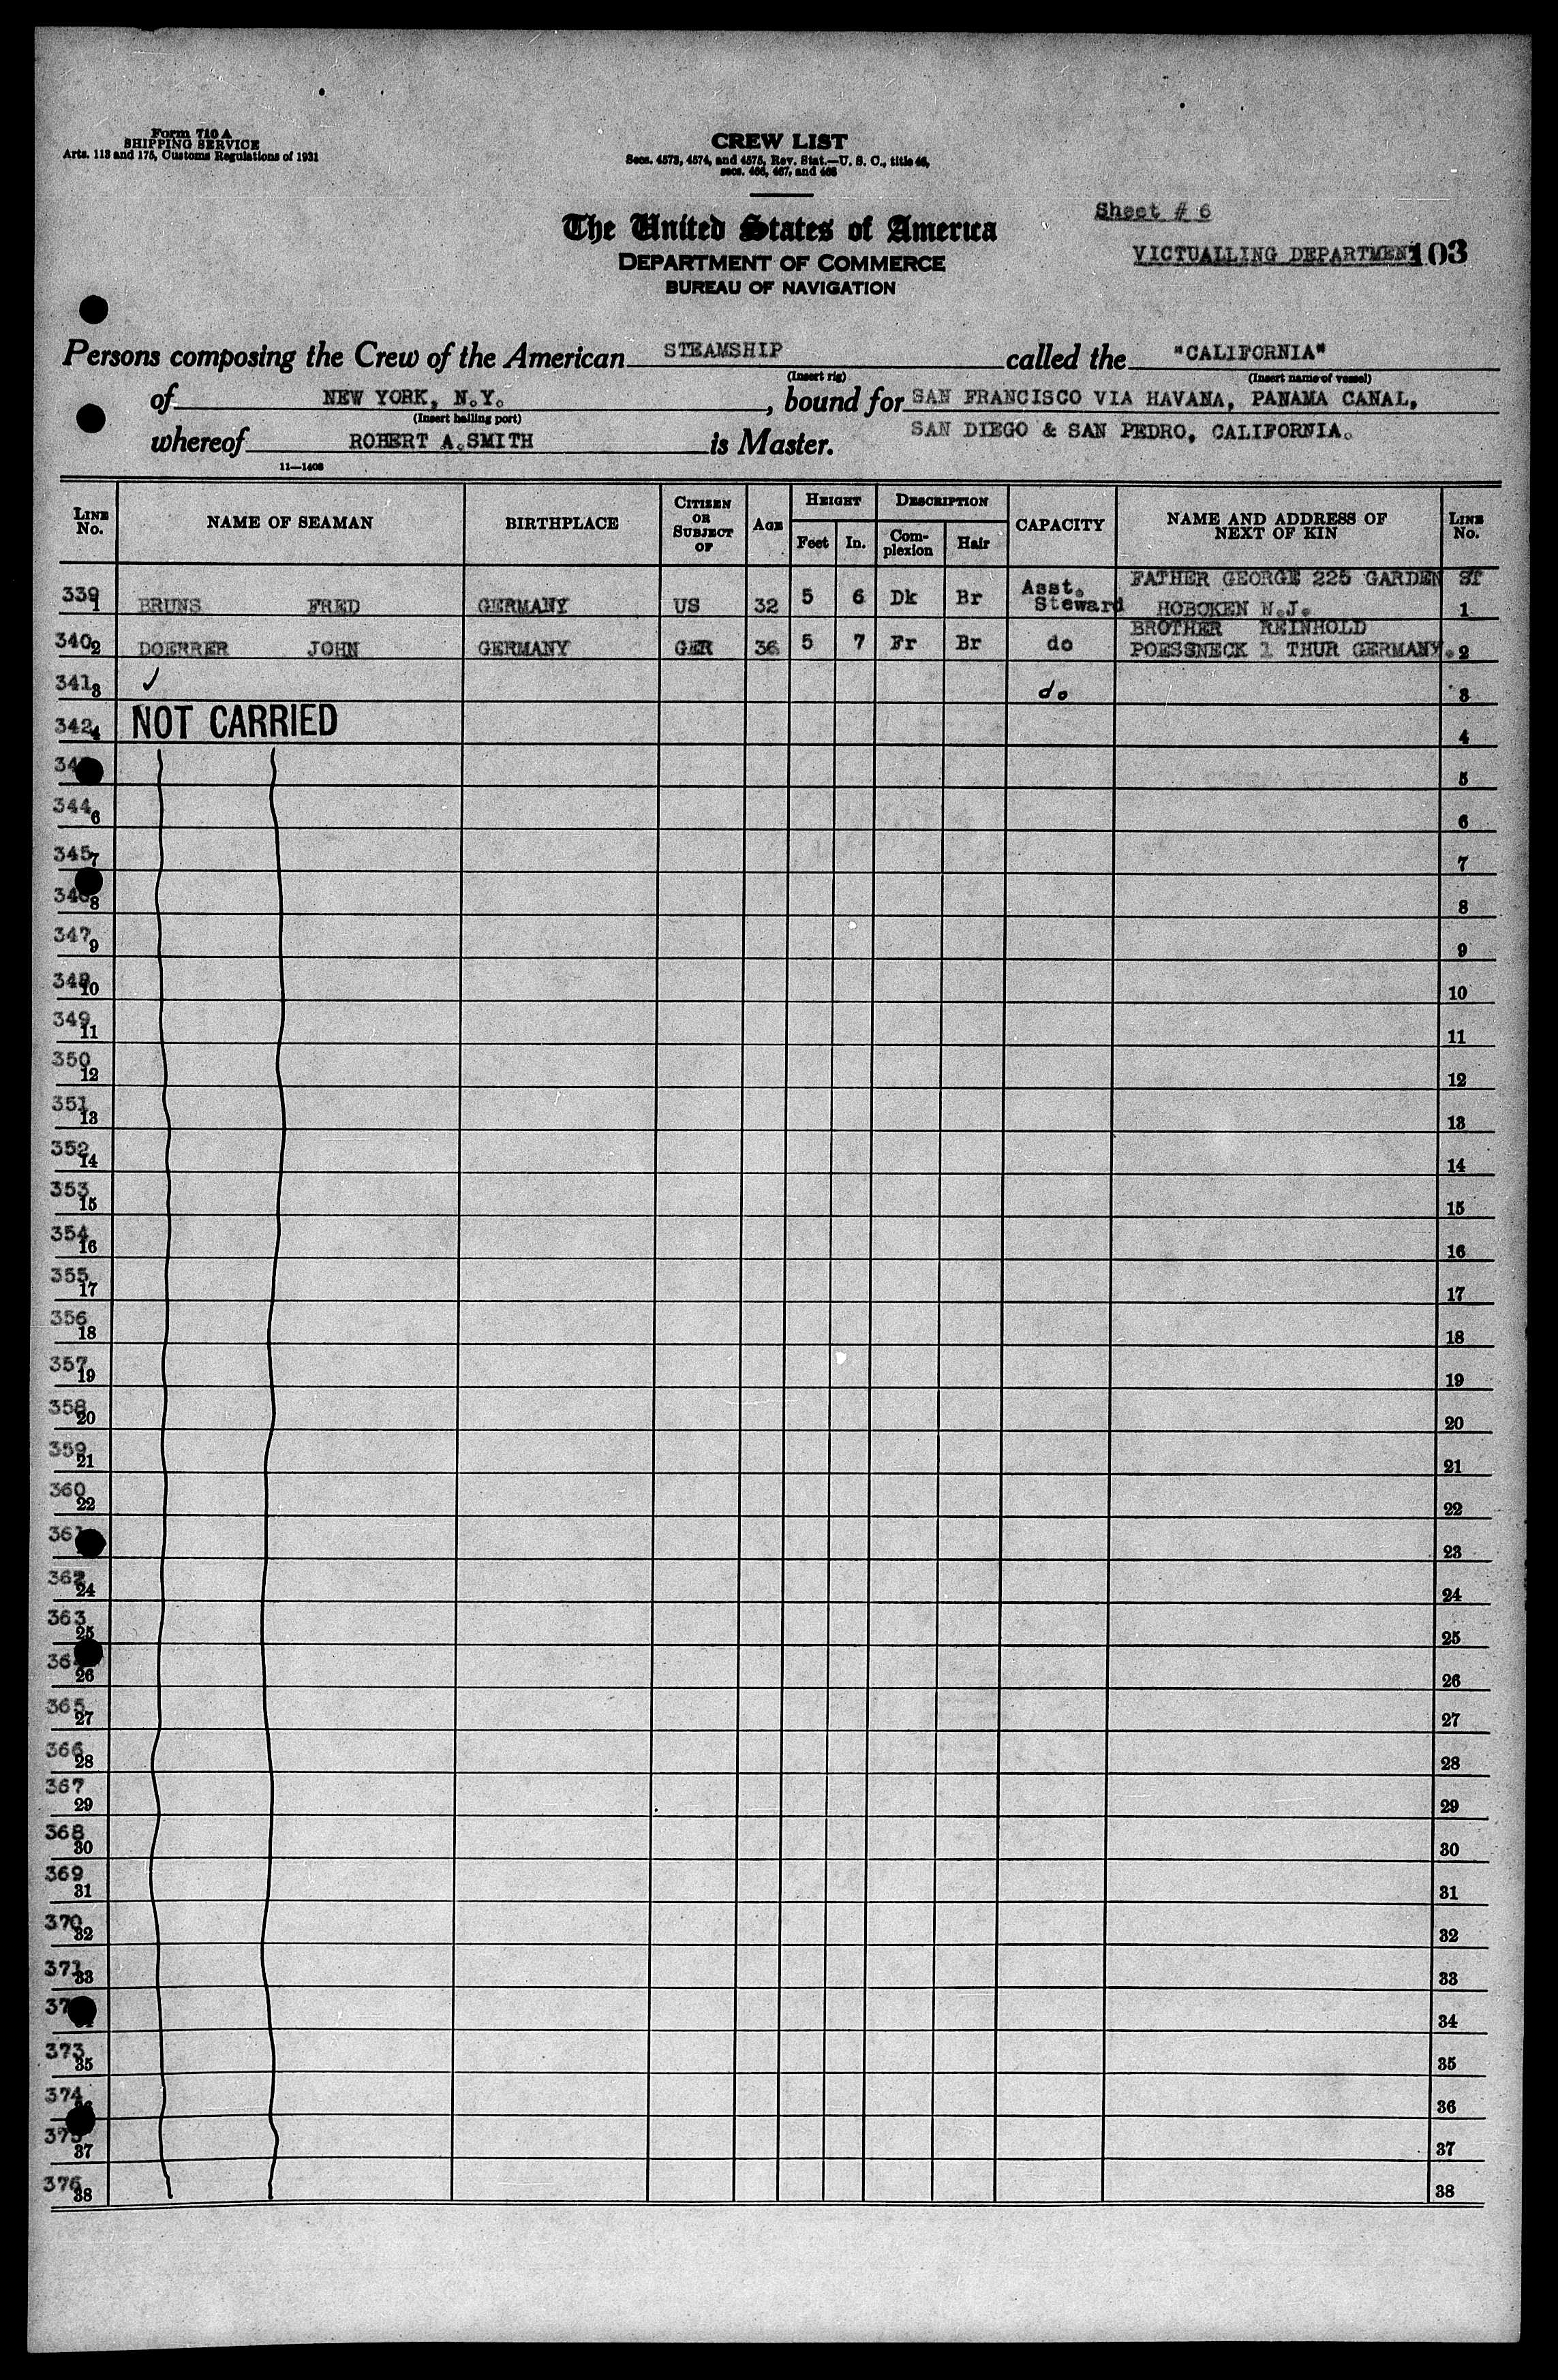 Form 710 A
SHIPPING SERVICE
Arts. 113 and 175, Customs Regulations of 1931
CREW LIST
Secs. 4573, 4574, and 4575, Rev. Stat.—U. S. C., title 46,
secs. 466, 467, and 468
The United States of America
DEPARTMENT OF COMMERCE
BUREAU OF NAVIGATION
Sheet # 6
VICTUALLING DEPARTMENT 103
Persons composing the Crew of the American STEAMSHIP called the "CALIFORNIA"
(Insert rig) (Insert name of vessel)
of NEW YORK, N.Y., bound for SAN FRANCISCO VIA HAVANA, PANAMA CANAL,
(Insert hailing port)
whereof ROBERT A.SMITH is Master. SAN DIEGO & SAN PEDRO, CALIFORNIA.
11—1408
LINE No. NAME OF SEAMAN BIRTHPLACE CITIZEN OR SUBJECT OF AGE HEIGHT Feet In. DESCRIPTION Complexion Hair CAPACITY NAME AND ADDRESS OF NEXT OF KIN LINE No.
339 1 BRUNS FRED GERMANY US 32 5 6 Dk Br Asst. Steward FATHER GEORGE 225 GARDEN ST HOBOKEN N.J. 1
340 2 DOERRER JOHN GERMANY GER 36 5 7 Fr Br do BROTHER REINHOLD POESSNECK 1 THUR GERMANY. 2
341 3 ✓ do 3
342 4 NOT CARRIED 4
34 5
344 6 6
345 7 7
346 8 8
347 9 9
348 10 10
349 11 11
350 12 12
351 13 13
352 14 14
353 15 15
354 16 16
355 17 17
356 18 18
357 19 19
358 20 20
359 21 21
360 22 22
361 23
362 24 24
363 25 25
36 26 26
365 27 27
366 28 28
367 29 29
368 30 30
369 31 31
370 32 32
371 33 33
37 34
373 35 35
374 36 36
375 37 37
376 38 38